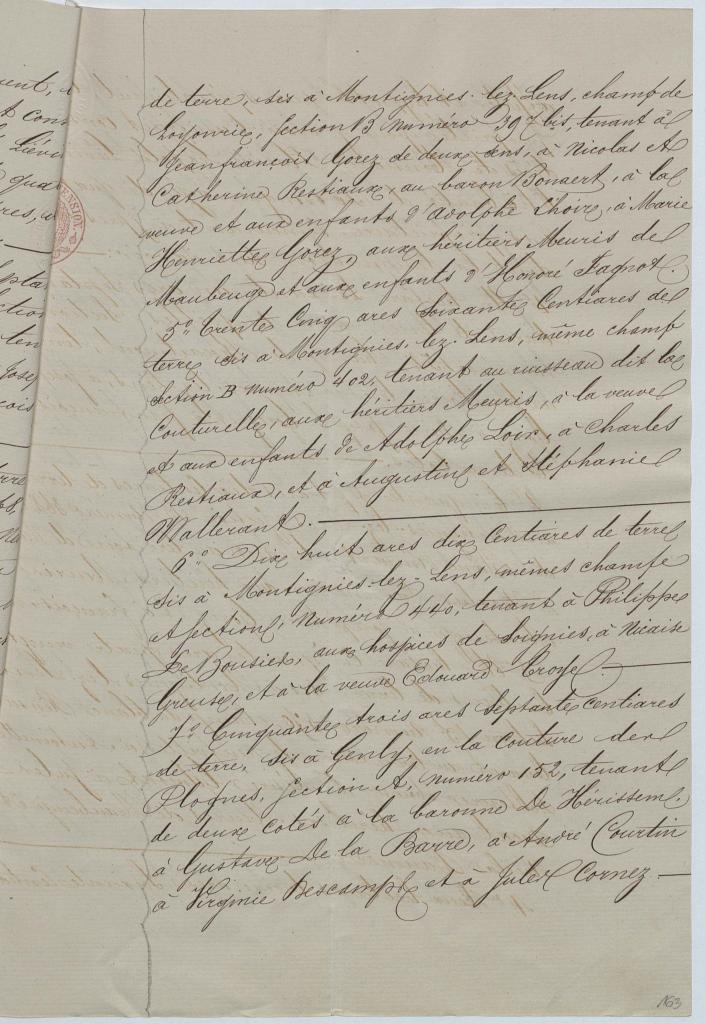 de terre, sis à Montignies-lez-Lens, champ de
section B numéro 397 bis, tenant à
Jeanfrançois Gorez de deux sens, à Nicolas et
Catherine Restiaux, au baron Bonaert, à la
veuve et aux enfants d'adolphe Lhoir, à Marie
Henriette Gorez, aux héritiers Meuris de
Maubeuge et aux enfants d'Honoré Fagnot.
5° Trente Cinq ares Soixante Centiares de
terre sis à Montignies-lez-Lens, même champ
section B numéro 402, tenant au ruisseau dit la
Couturelle, aux héritiers Meuris, à la veuve
et aux enfants de Adolphe Loir, à Charles
Restiaux, et à Augustine et Stéphanie
Wallerant.
6° Dix huit ares dix Centiares de terre
sis à Montignies-lez-Lens, mêmes champ
et section, numéro 440, tenant à Philippe
De Bousies, aux hospices de Soignies, à Nicaise
Greuse, et à la veuve Edouard
7° Cinquante trois ares septante centiares
de terre, sis à Genly, en la Couture des
Plognes, section A, numéro 152, tenant
de deux cotés à la baronne De Hérissem,
à Gustave De la Barre, à André Courtin
à Virginie Descamps et à Jules Cornez
163